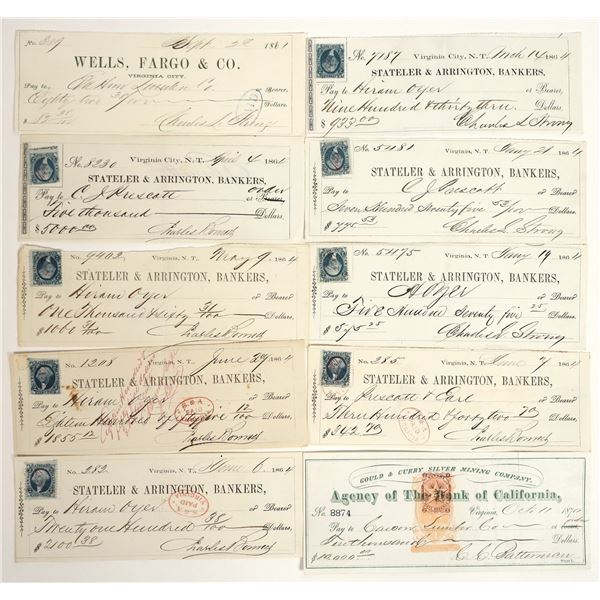 No. 219 Sept. 28 1861
WELLS, FARGO & CO.
VIRGINIA CITY.
Pay to or Bearer,
Eighty two Dollars.
Charles L Strong
No. 7187 Virginia City, N. T. Mch 14 1864
STATELER & ARRINGTON, BANKERS,
Pay to Hiram Oyer or Bearer,
Nine Hundred & thirty three Dollars.
$ 933.00 Charles L Strong
No. 8230 Virginia City, N. T. April 4 1864
STATELER & ARRINGTON, BANKERS,
Pay to C J Prescott order or Bearer
Five thousand Dollars.
$ 5000.00 Charles Bonner
No. 5481 Virginia, N. T. 21 1864
STATELER & ARRINGTON, BANKERS,
Pay to C J Prescott or Bearer
Seven Hundred Seventy five 53/100 Dollars,
$ 775 53 Charles L Strong
No. 9402 Virginia, N. T. May 9, 1864
STATELER & ARRINGTON, BANKERS,
Pay to Hiram Oyer or Bearer
One Thousand & sixty Dollars,
$ 1060 Charles Bonner
No. 5475 Virginia, N. T. 19 1864
STATELER & ARRINGTON, BANKERS,
Pay to H Oyer or Bearer
Five Hundred Seventy five 25 Dollars,
$ 575 25 Charles L Strong
No. 1208 Virginia, N. T. June 29 1864
STATELER & ARRINGTON, BANKERS,
Pay to Hiram Oyer or Bearer
Eighteen Hundred fifty five 12 Dollars,
$ 1855 12 Charles Bonner
No. 285 Virginia, N. T. June 7 1864
STATELER & ARRINGTON, BANKERS,
Pay to Prescott & Earl or Bearer
Three Hundred & forty two 70 Dollars,
$ 342 70 Charles Bonner
No. 282 Virginia, N. T. June 6 1864
STATELER & ARRINGTON, BANKERS,
Pay to Hiram Oyer or Bearer
Twenty one Hundred 38 Dollars,
$ 2100 38 PAID Charles Bonner
GOULD & CURRY SILVER MINING COMPANY.
Agency of The Bank of California,
No. 8874 Virginia, Oct 11 187
Pay to Carson Lumber Co or
Dollars,
$ 10,000.00 C. C. Batterman